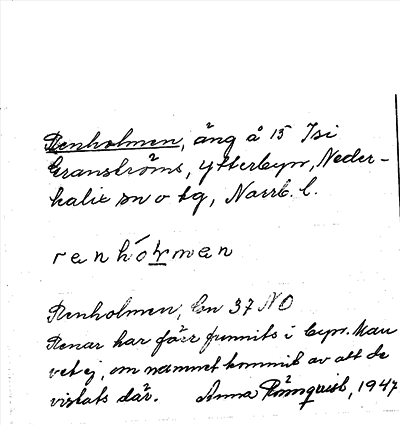 Renholmen, äng å 15 Isi
Granströms, Ytterbyn, Neder-
kalix sn o tg, Norrb. l.
renhólmen
Renholmen, En 37 NO
Renar har förr funnits i byn. Man
vet ej, om namnet kommit av att de
vistats där. Anna Rönnquist, 1947